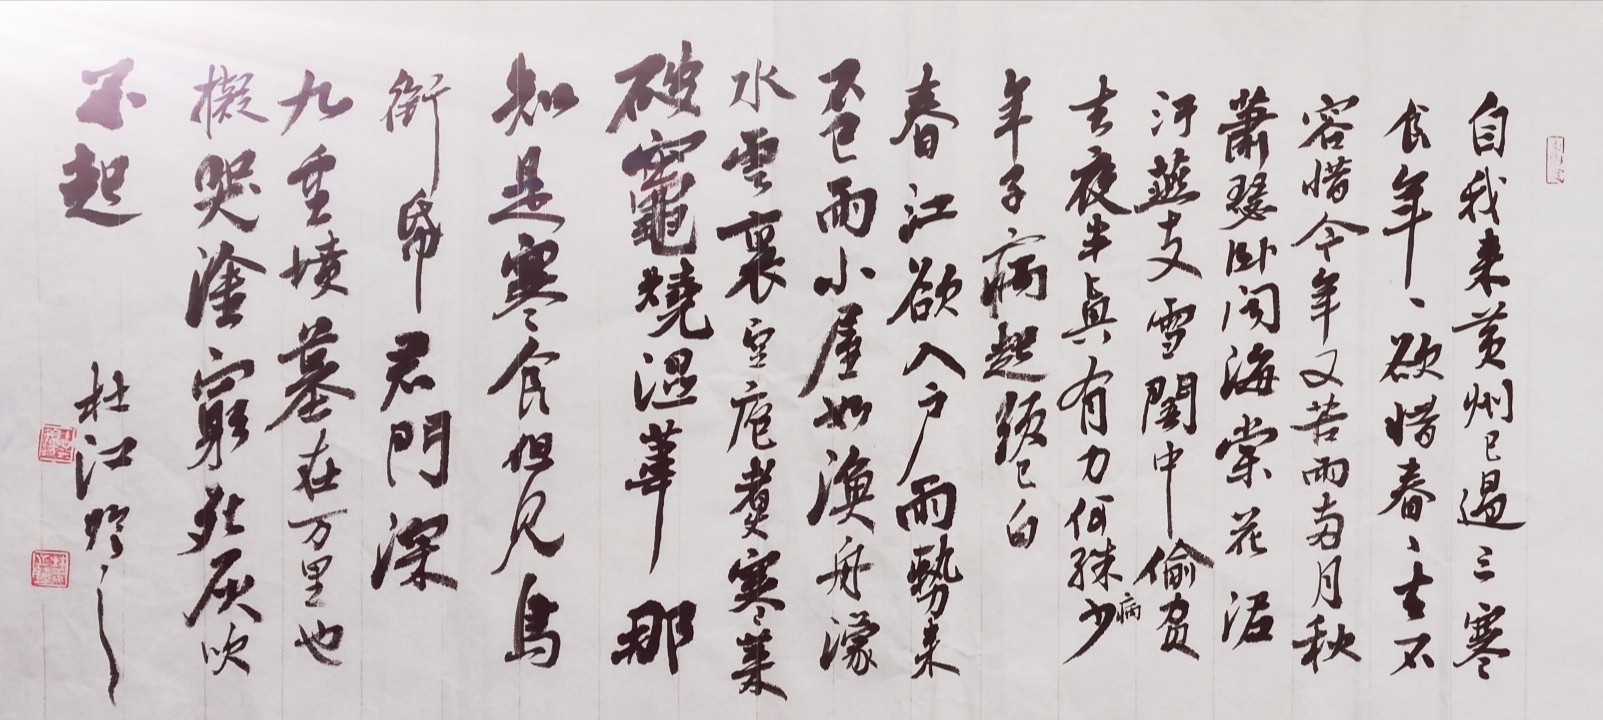 自我来黄州已過三寒
食年、欲惜春、去不
容惜今年又苦雨两月秋
蕭瑟卧闻海棠花泥
汙燕支雪闇中偷負
去夜半真有力何殊少
病
年子病起须已白
春江欲入户雨勢来
不已雨小屋如漁舟濛
水雲裏空庖煮寒菜
破竈燒濕葦 那
知是寒食但見烏
銜帋君門深
九重墳墓在万里也
擬哭塗窮死灰吹
不起 杜江